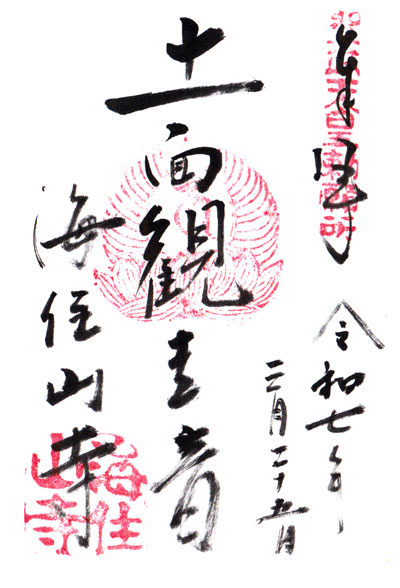 奉拝
令和七年
三月二十九日
十一面観世音
海住山寺
海住
山寺